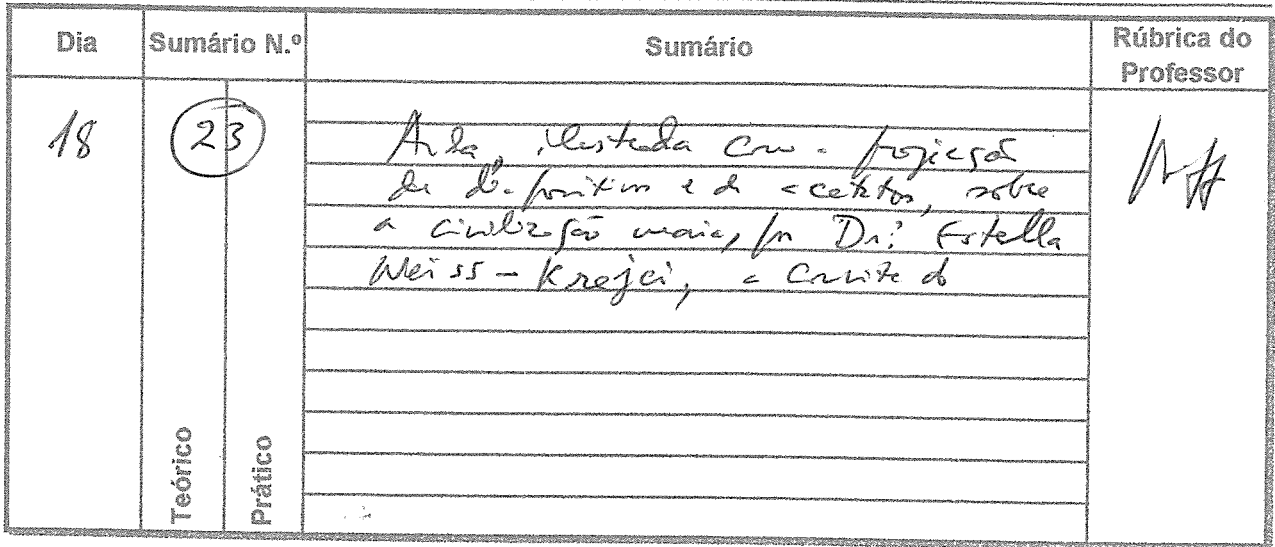 Dia Sumário N.º Sumário Rúbrica do Professor
18 23
Aula, ilustrada com a projecção
de diapositivos e de acetatos, sobre
a civilização maia, por Dr.ª Estella
Weiss-Krejci, a convite do
Teórico
Prático